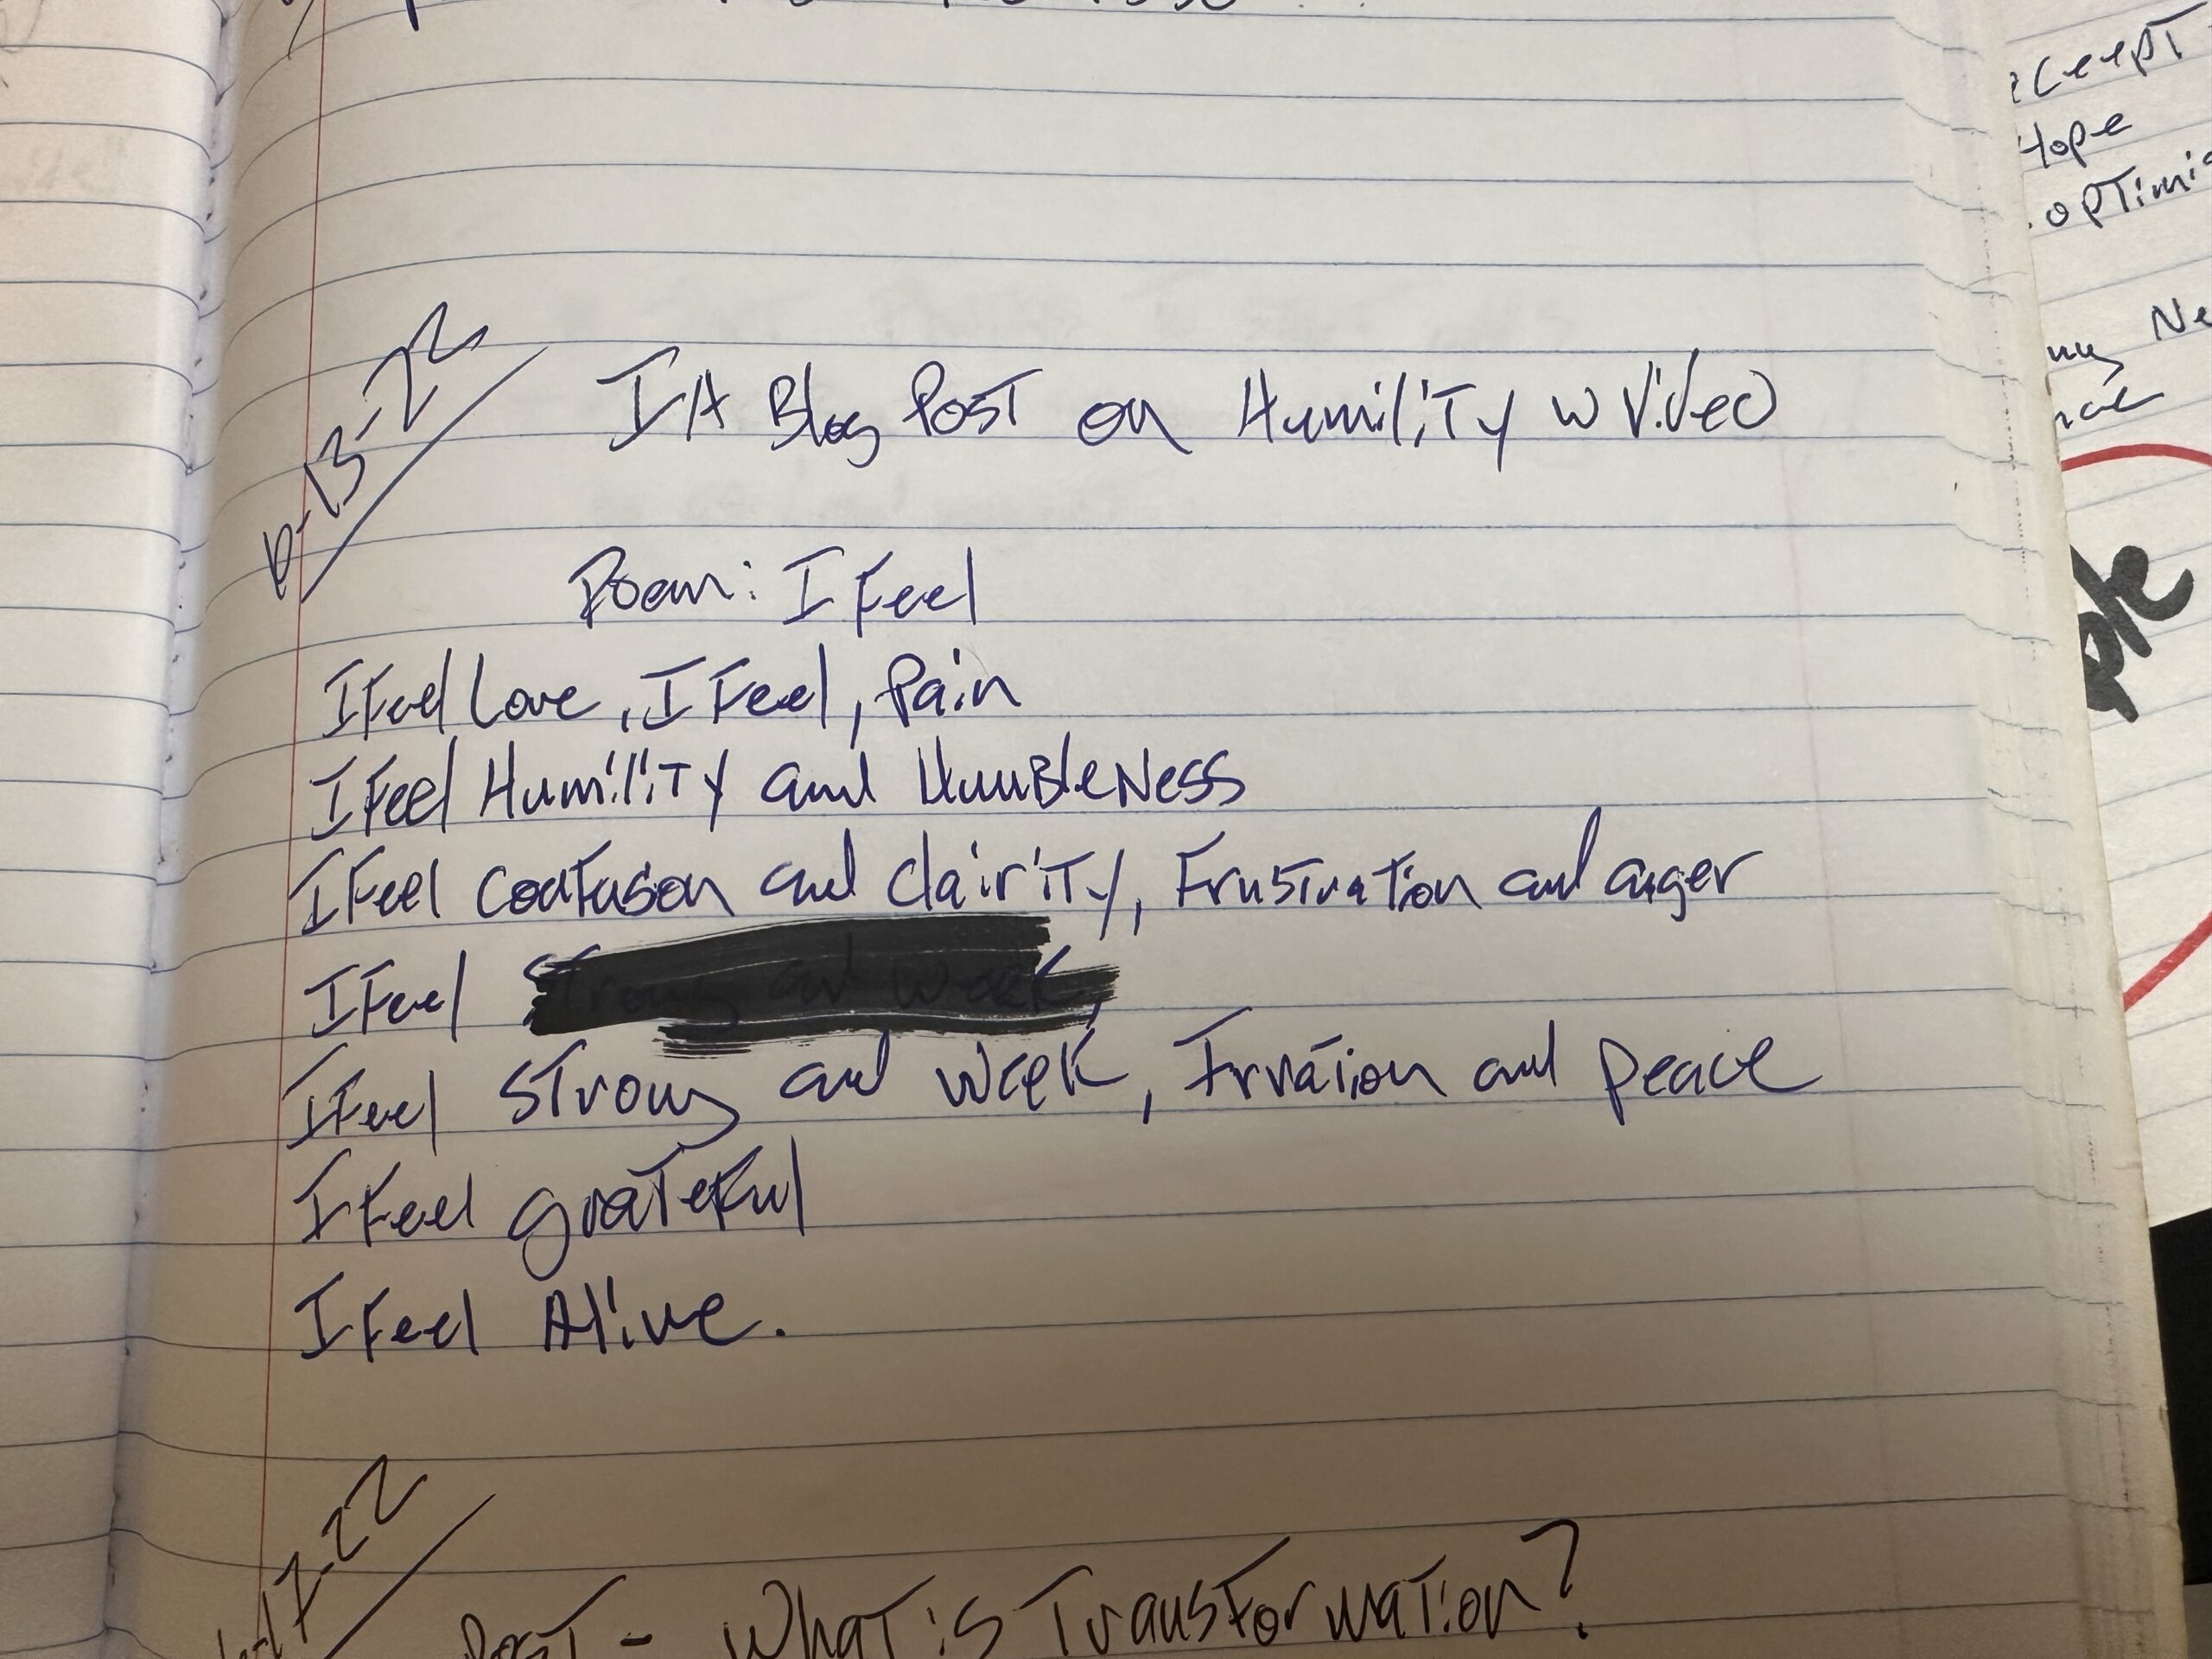 -13-22
IA Blog Post on Humility w Video
Poem: I Feel
I Feel Love, I Feel, Pain
I Feel Humility and Humbleness
I Feel confuson and clairity, Frustration and anger
I Feel strong and week,
I Feel strong and week, Frration and peace
I Feel grateful
I Feel Alive.
-17-22
Post - What is Transformation?
ccept
Hope
optimis
Ne
ple